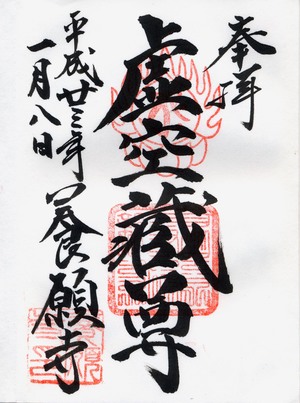 奉拝
虚空蔵尊
平成廿三年
一月八日
養願寺